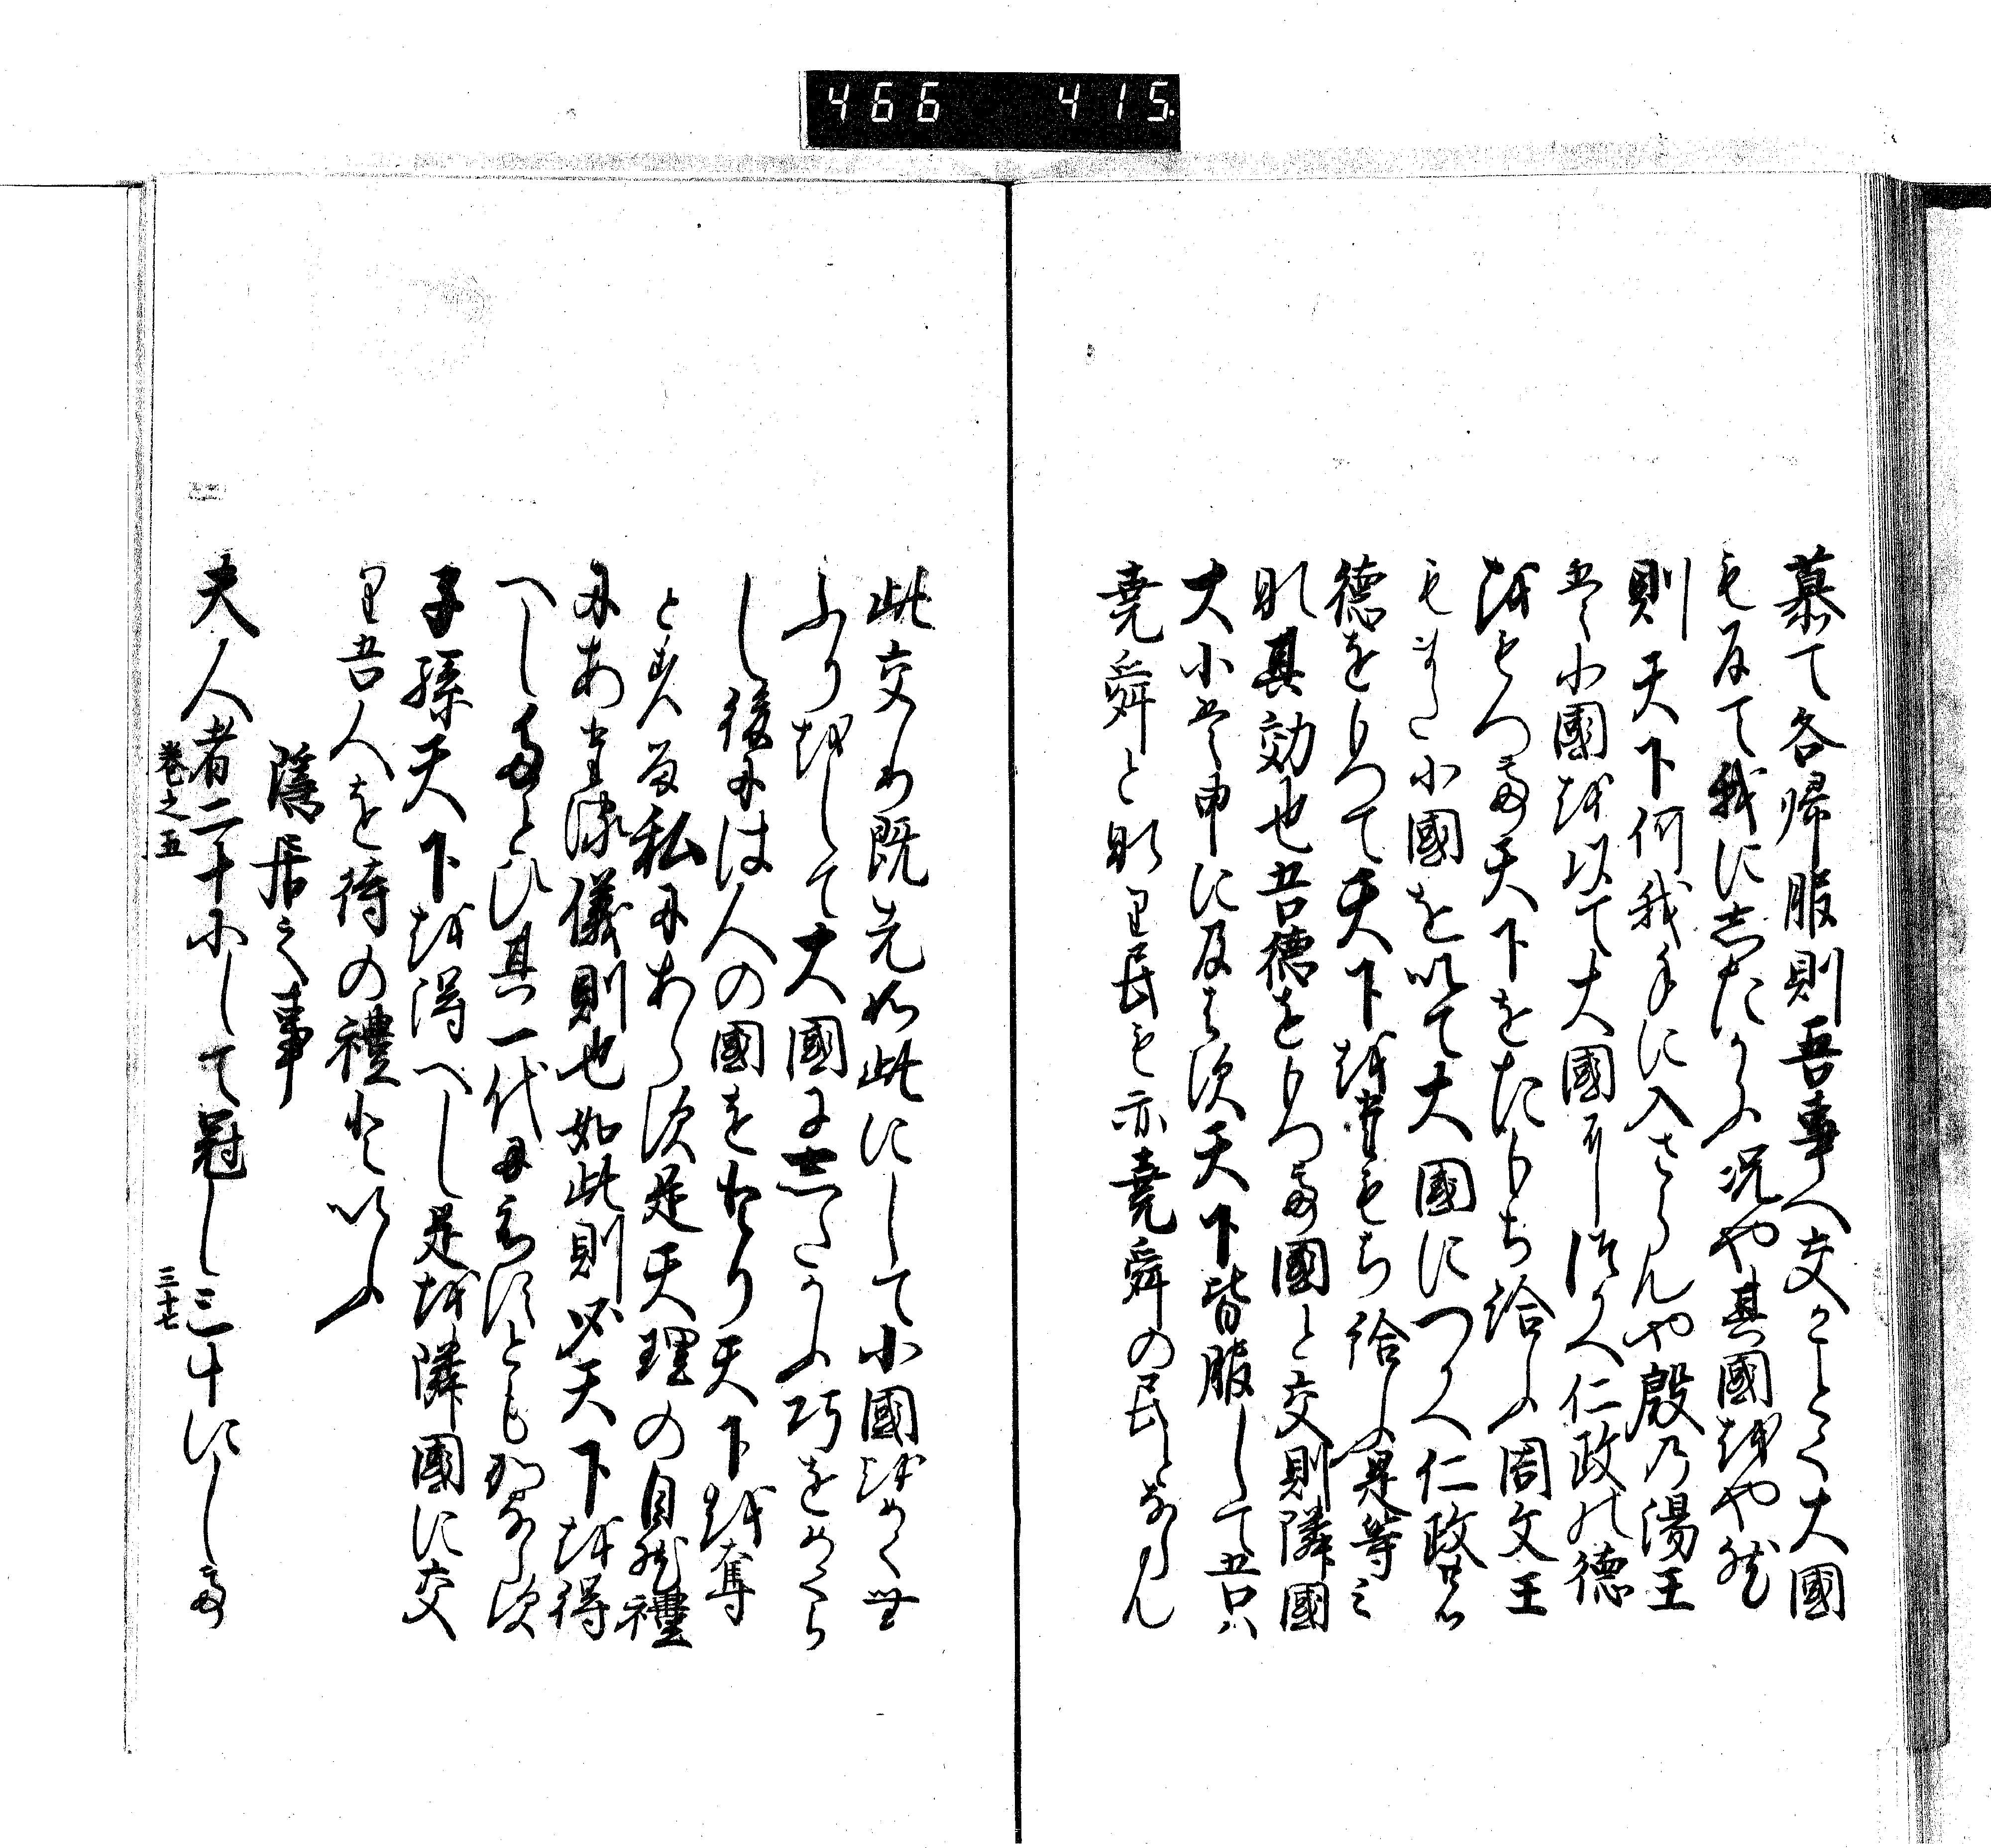 466 415
慕て各帰服則吾事へ交ことく大國
も反て我に志たかふ况や其國越や然
則天下何我手に入さらんや殷乃湯王
ハ小國越以て大國に仕へ仁政の徳
越もつて天下をたもち給ふ周文王
もまた小國を以て大國につかへ仁政の
徳をもつて天下越たもち給ふ是等之
則其効也吾徳をもつて國と交則隣國
大小ハ申に及はす天下皆服して吾ハ
堯舜と則里民も亦堯舜の民とならん
此交め既先如此にして小國越めくむ
ふり越して大國に志たかふ巧をめくら
し後には人の國をとり天下越奪
と云は私にあらす是天理の自然禮
にあた流儀則也如此則必天下越得
へしたとひ其一代に至すとも
子孫天下越得へし是越隣國に交
里吾人を待の禮といふ
隱居之事
夫人者二十にして冠し三十にして
巻之五
三十七